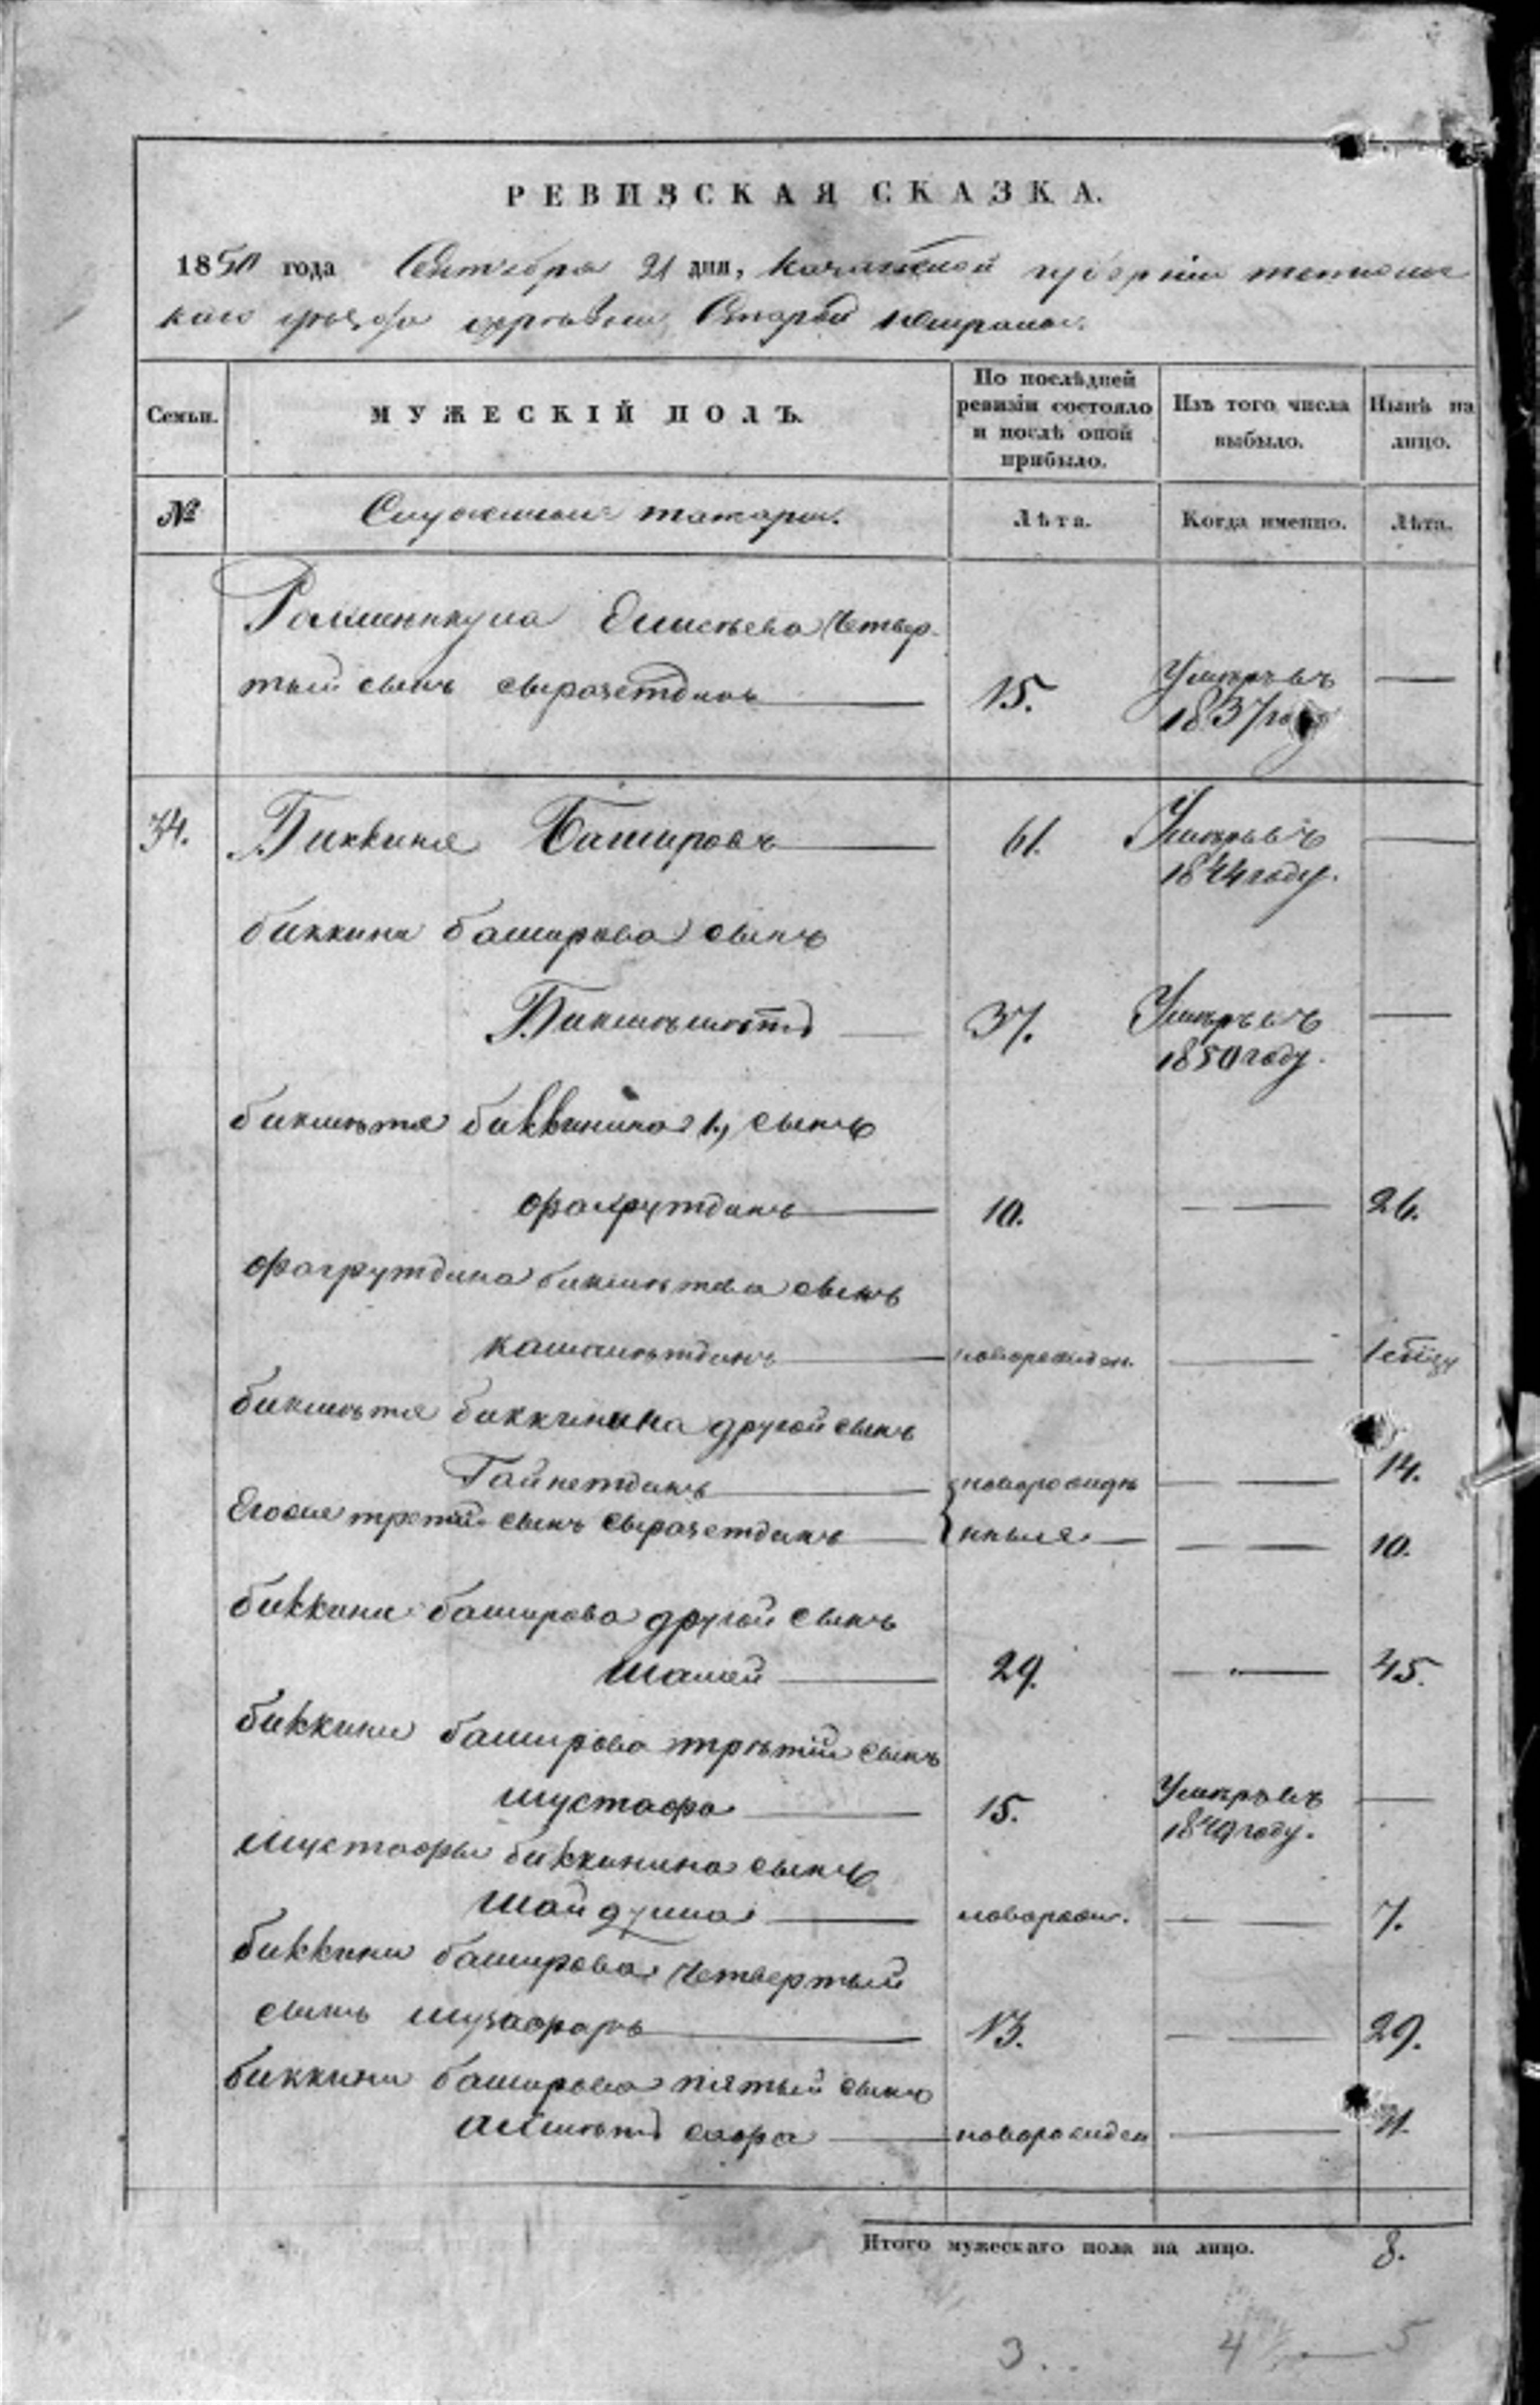 РЕВИЗСКАЯ СКАЗКА.
1850 года Сентября 21 дня, Казанской губернии тетюшс
каго уѣзда деревни Старой
Семьи. МУЖЕСКІЙ ПОЛЪ. По послѣдней ревизіи состояло и послѣ оной прибыло. Изъ того числа выбыло. Нынѣ на лицо.
№ Служилые татары. Лѣта. Когда именно. Лѣта.
Рахманкула четвер
тый сынъ сыразетдинъ 15. Умеръ въ 1837 году —
34. Биккиня Башировъ 61. Умеръ въ 1844 году. —
биккини баширова сынъ
Бикмѣметь 37. Умеръ въ 1850 году. —
бикмѣтя биккинина 1, сынъ
фахрутдинъ 10. — 26.
фахрутдина бикмѣтева сынъ
камалѣтдинъ новорожден. —
бикмѣтя биккинина другой сынъ
Гайнетдинъ новорожде — 14.
Егоже третій сынъ сыразетдинъ нные — 10.
биккини баширова другой сынъ
Шамей 29. — 45.
биккини баширова третій сынъ
мустафа 15. Умеръ въ 1849 году. —
мустафы биккинина сынъ
Шайдулла новорож. — 7.
биккини баширова четвертый
сынъ музафаръ 13. — 29.
биккини баширова пятый сынъ
сафа новорожден — 11.
Итого мужескаго пола на лицо. 8.
3. 4 — 5